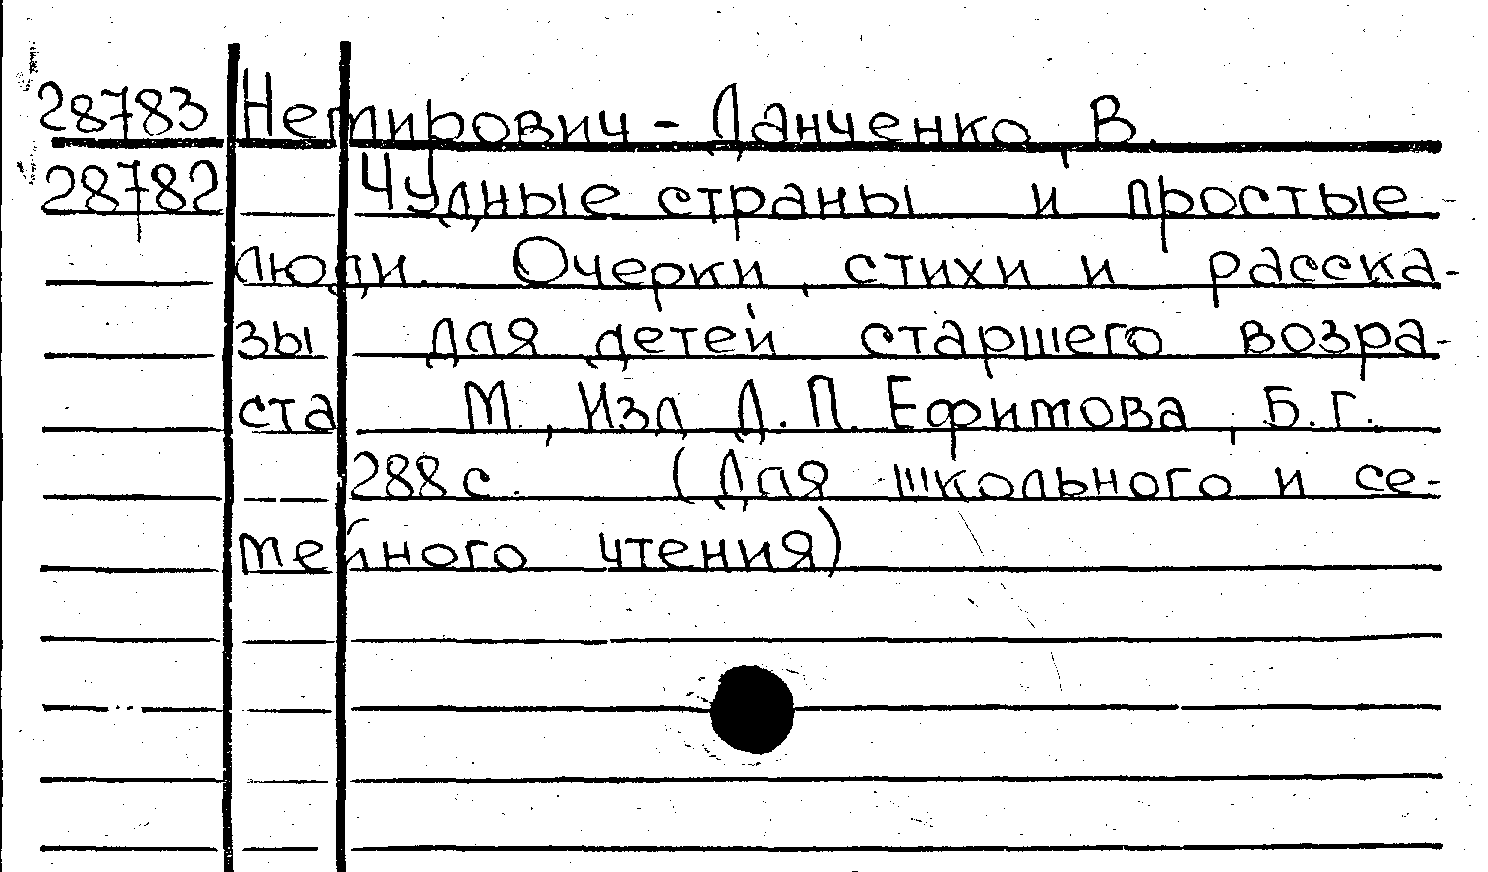 28783 Немирович-Данченко, В.
28782 Чудные страны и простые
люди. Очерки, стихи и расска-
зы для детей старшего возра-
ста. М., Изд. Д. П. Ефимова, Б. Г.
288 с. (Для школьного и се-
мейного чтения)